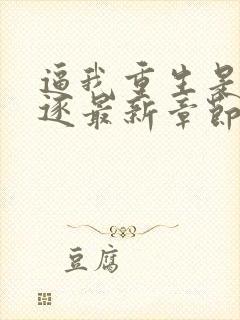 逼我重生是
逐最新章節
豆腐